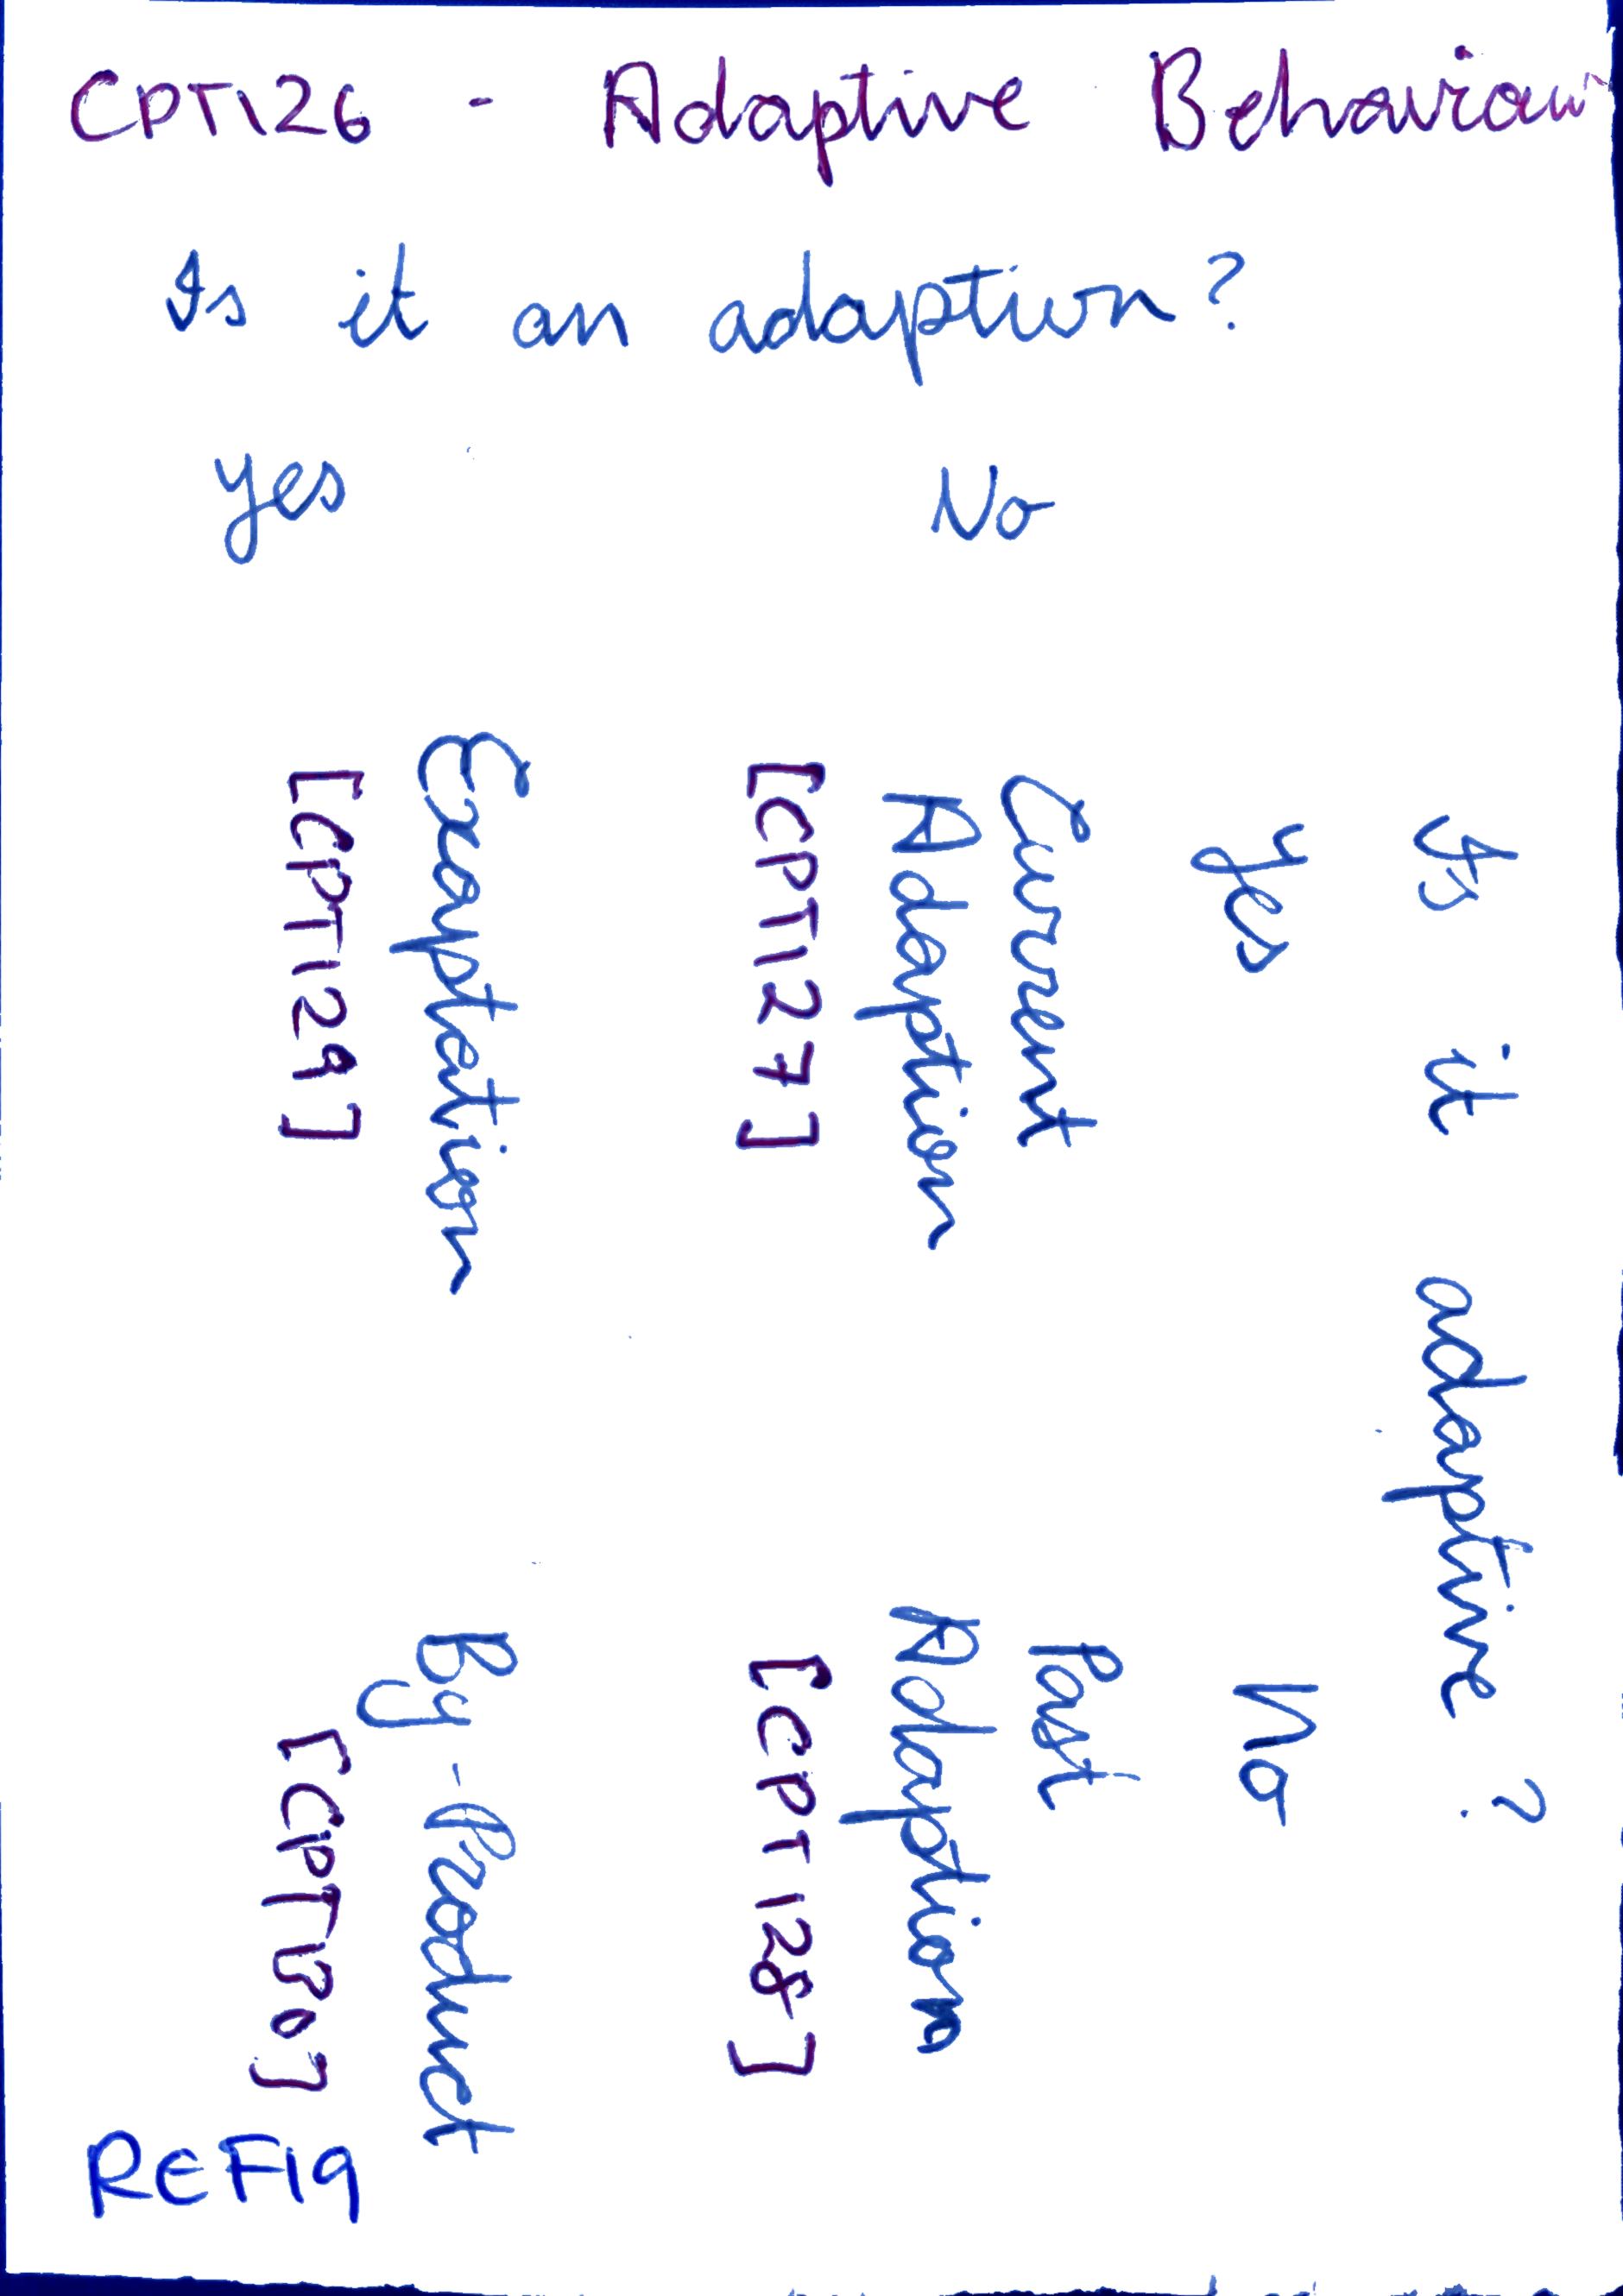 CPT126 - Adaptive Behaviour
Is it an adaption?
Yes No
Is it adaptive?
Yes No
Current Past
Adaption Adaption
[CPT127] [CPT128]
Exaptation By-Product
[CPT129] [CPT130]
REF19